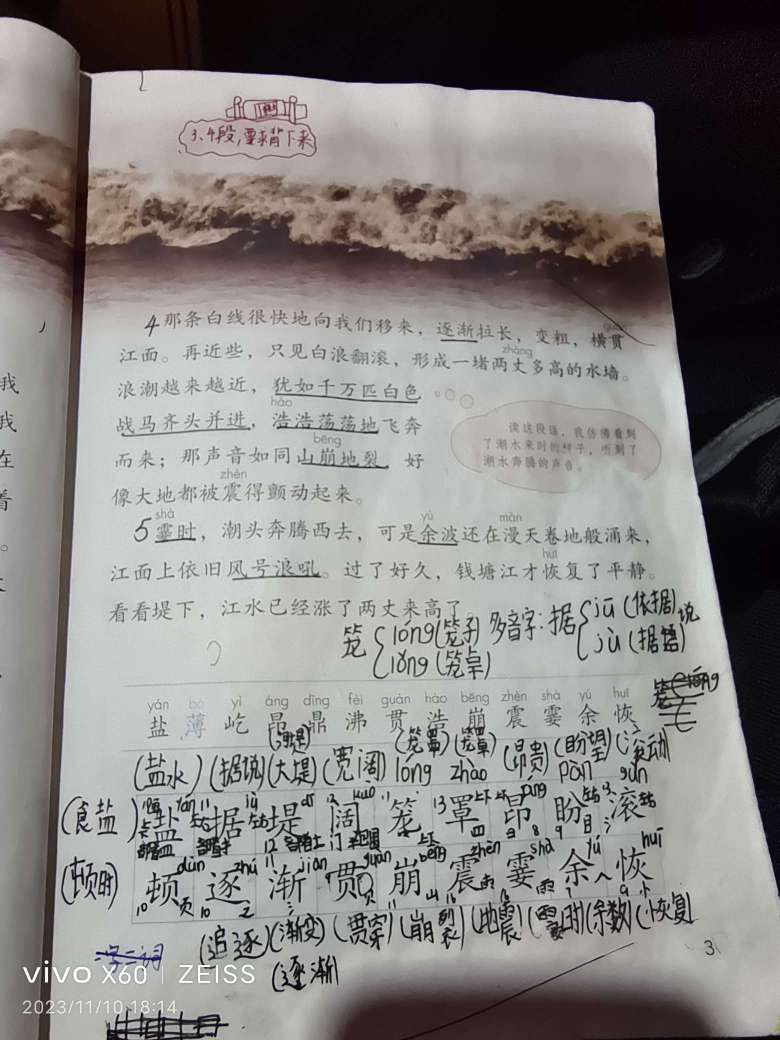 3、4段,要求背下来
4 那条白线很快地向我们移来,逐渐拉长,变粗,横贯
guàn
zhàng
江面。再近些,只见白浪翻滚,形成一堵两丈多高的水墙。
浪潮越来越近,犹如千万匹白色
hào
战马齐头并进,浩浩荡荡地飞奔
bēng
而来;那声音如同山崩地裂,好
zhèn
像大地都被震得颤动起来。
读这段话,我仿佛看到
了潮水来时的样子,听到了
潮水奔腾的声音。
shà yú màn
5 霎时,潮头奔腾西去,可是余波还在漫天卷地般涌来,
huī
江面上依旧风号浪吼。过了好久,钱塘江才恢复了平静。
看看堤下,江水已经涨了两丈来高了。
笼 lóng(笼子) lǒng(笼罩)
多音字:据 jū jù(依据)
yán bó yì áng dǐng fèi guàn hào bēng zhèn shà yú huī
盐 薄 屹 昂 鼎 沸 贯 浩 崩 震 霎 余 恢
(河堤) (笼罩) (笼罩)
(盐水)(据说)(大堤)(宽阔) lóng zhào (昂贵)(盼望)(滚动)
(食盐) 盐 据 堤 阔 笼 罩 昂 盼 滚
(顿时) 顿 逐 渐 贯 崩 震 霎 余 恢
(追逐)(渐变)(贯穿)(崩裂)(地震)(霎时)(余数)(恢复)
(逐渐)
3
vivo X60 | ZEISS
2023/11/10 18:14